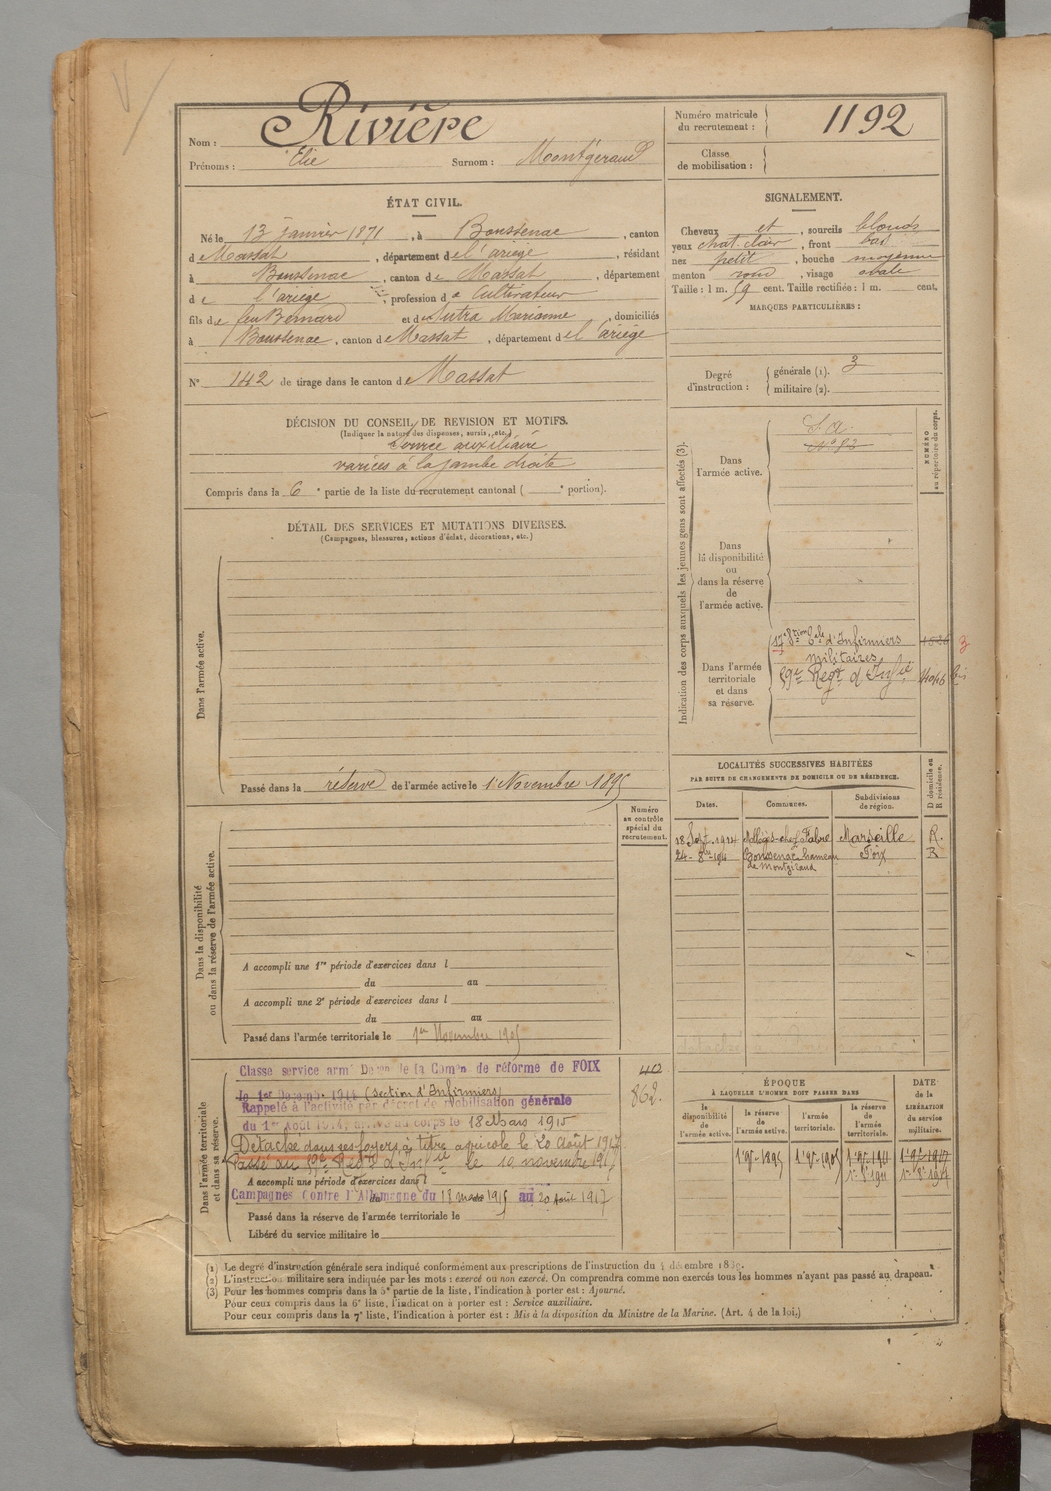 Nom : Rivière
Prénoms : Elie Surnom : Montgeraud
Numéro matricule du recrutement : 1192
Classe de mobilisation :
ÉTAT CIVIL.
Né le 13 janvier 1871, à Boussenac, canton
de Massat, département de l'ariège, résidant
à Boussenac, canton de Massat, département
de l'ariège, profession de Cultivateur
fils de feu Bernard et de Sutra Marianne, domiciliés
à Boussenac, canton de Massat, département de l'ariège
N° 142 de tirage dans le canton de Massat
SIGNALEMENT.
Cheveux et, sourcils blonds
yeux chat. clair, front bas
nez petit, bouche moyenne
menton rond, visage ovale
Taille : 1 m. 59 cent. Taille rectifiée : 1 m. cent.
MARQUES PARTICULIÈRES :
Degré d'instruction : générale (1). 3
militaire (2).
DÉCISION DU CONSEIL DE REVISION ET MOTIFS.
(Indiquer la nature des dispenses, sursis, etc.)
Service auxiliaire
varices à la jambe droite
Compris dans la 6e partie de la liste du recrutement cantonal ( e portion).
DÉTAIL DES SERVICES ET MUTATIONS DIVERSES.
(Campagnes, blessures, actions d'éclat, décorations, etc.)
Dans l'armée active.
Passé dans la réserve de l'armée active le 1er Novembre 1895
Indication des corps auxquels les jeunes gens sont affectés (3).
NUMÉRO au répertoire du corps.
Dans l'armée active.
S. a.
N° 92
Dans la disponibilité ou dans la réserve de l'armée active.
Dans l'armée territoriale et dans sa réserve.
17e Section d'Infirmiers
militaires 3
59e Regt d'Infie 4046 bis
LOCALITÉS SUCCESSIVES HABITÉES
PAR SUITE DE CHANGEMENTS DE DOMICILE OU DE RÉSIDENCE.
D domicile ou R résidence.
Dates. Communes. Subdivisions de région.
18 Sept. 1914 Mollégès chez Fabre Marseille R.
24 8bre 194 Boussenac hameau Foix R
de Montgiraud
Numéro au contrôle spécial du recrutement.
Dans la disponibilité ou dans la réserve de l'armée active.
A accompli une 1re période d'exercices dans l
du au
A accompli une 2e période d'exercices dans l
du au
Passé dans l'armée territoriale le 1er Novembre 1905
Dans l'armée territoriale et dans sa réserve.
Classe service armé Décon de la Comon de réforme de FOIX
le 1er Décembre 1914 (section d'Infirmiers)
Rappelé à l'activité par décret de mobilisation générale
du 1er Août 1914, arrivé au corps le 18 Mars 1915
862.
Détaché dans ses foyers à titre agricole le 20 Août 1917
Passé au 59e Regt d'Infie le 10 novembre 1917
A accompli une période d'exercices dans l
Campagnes Contre l'Allemagne du 18 mars 1915 au 20 Août 1917
Passé dans la réserve de l'armée territoriale le
Libéré du service militaire le
ÉPOQUE
À LAQUELLE L'HOMME DOIT PASSER DANS
DATE DE LA LIBÉRATION du service militaire.
la disponibilité de l'armée active. la réserve de l'armée active. l'armée territoriale. la réserve de l'armée territoriale.
1er 9bre 1895 1er 9bre 1905 1er 9bre 1911 1er 9bre 1917
1er 8bre 1911 1er 8bre 1917
(1) Le degré d'instruction générale sera indiqué conformément aux prescriptions de l'instruction du 4 décembre 1889.
(2) L'instruction militaire sera indiquée par les mots : exercé ou non exercé. On comprendra comme non exercés tous les hommes n'ayant pas passé au drapeau.
(3) Pour les hommes compris dans la 5e partie de la liste, l'indication à porter est : Ajourné.
Pour ceux compris dans la 6e liste, l'indication à porter est : Service auxiliaire.
Pour ceux compris dans la 7e liste, l'indication à porter est : Mis à la disposition du Ministre de la Marine. (Art. 4 de la loi.)